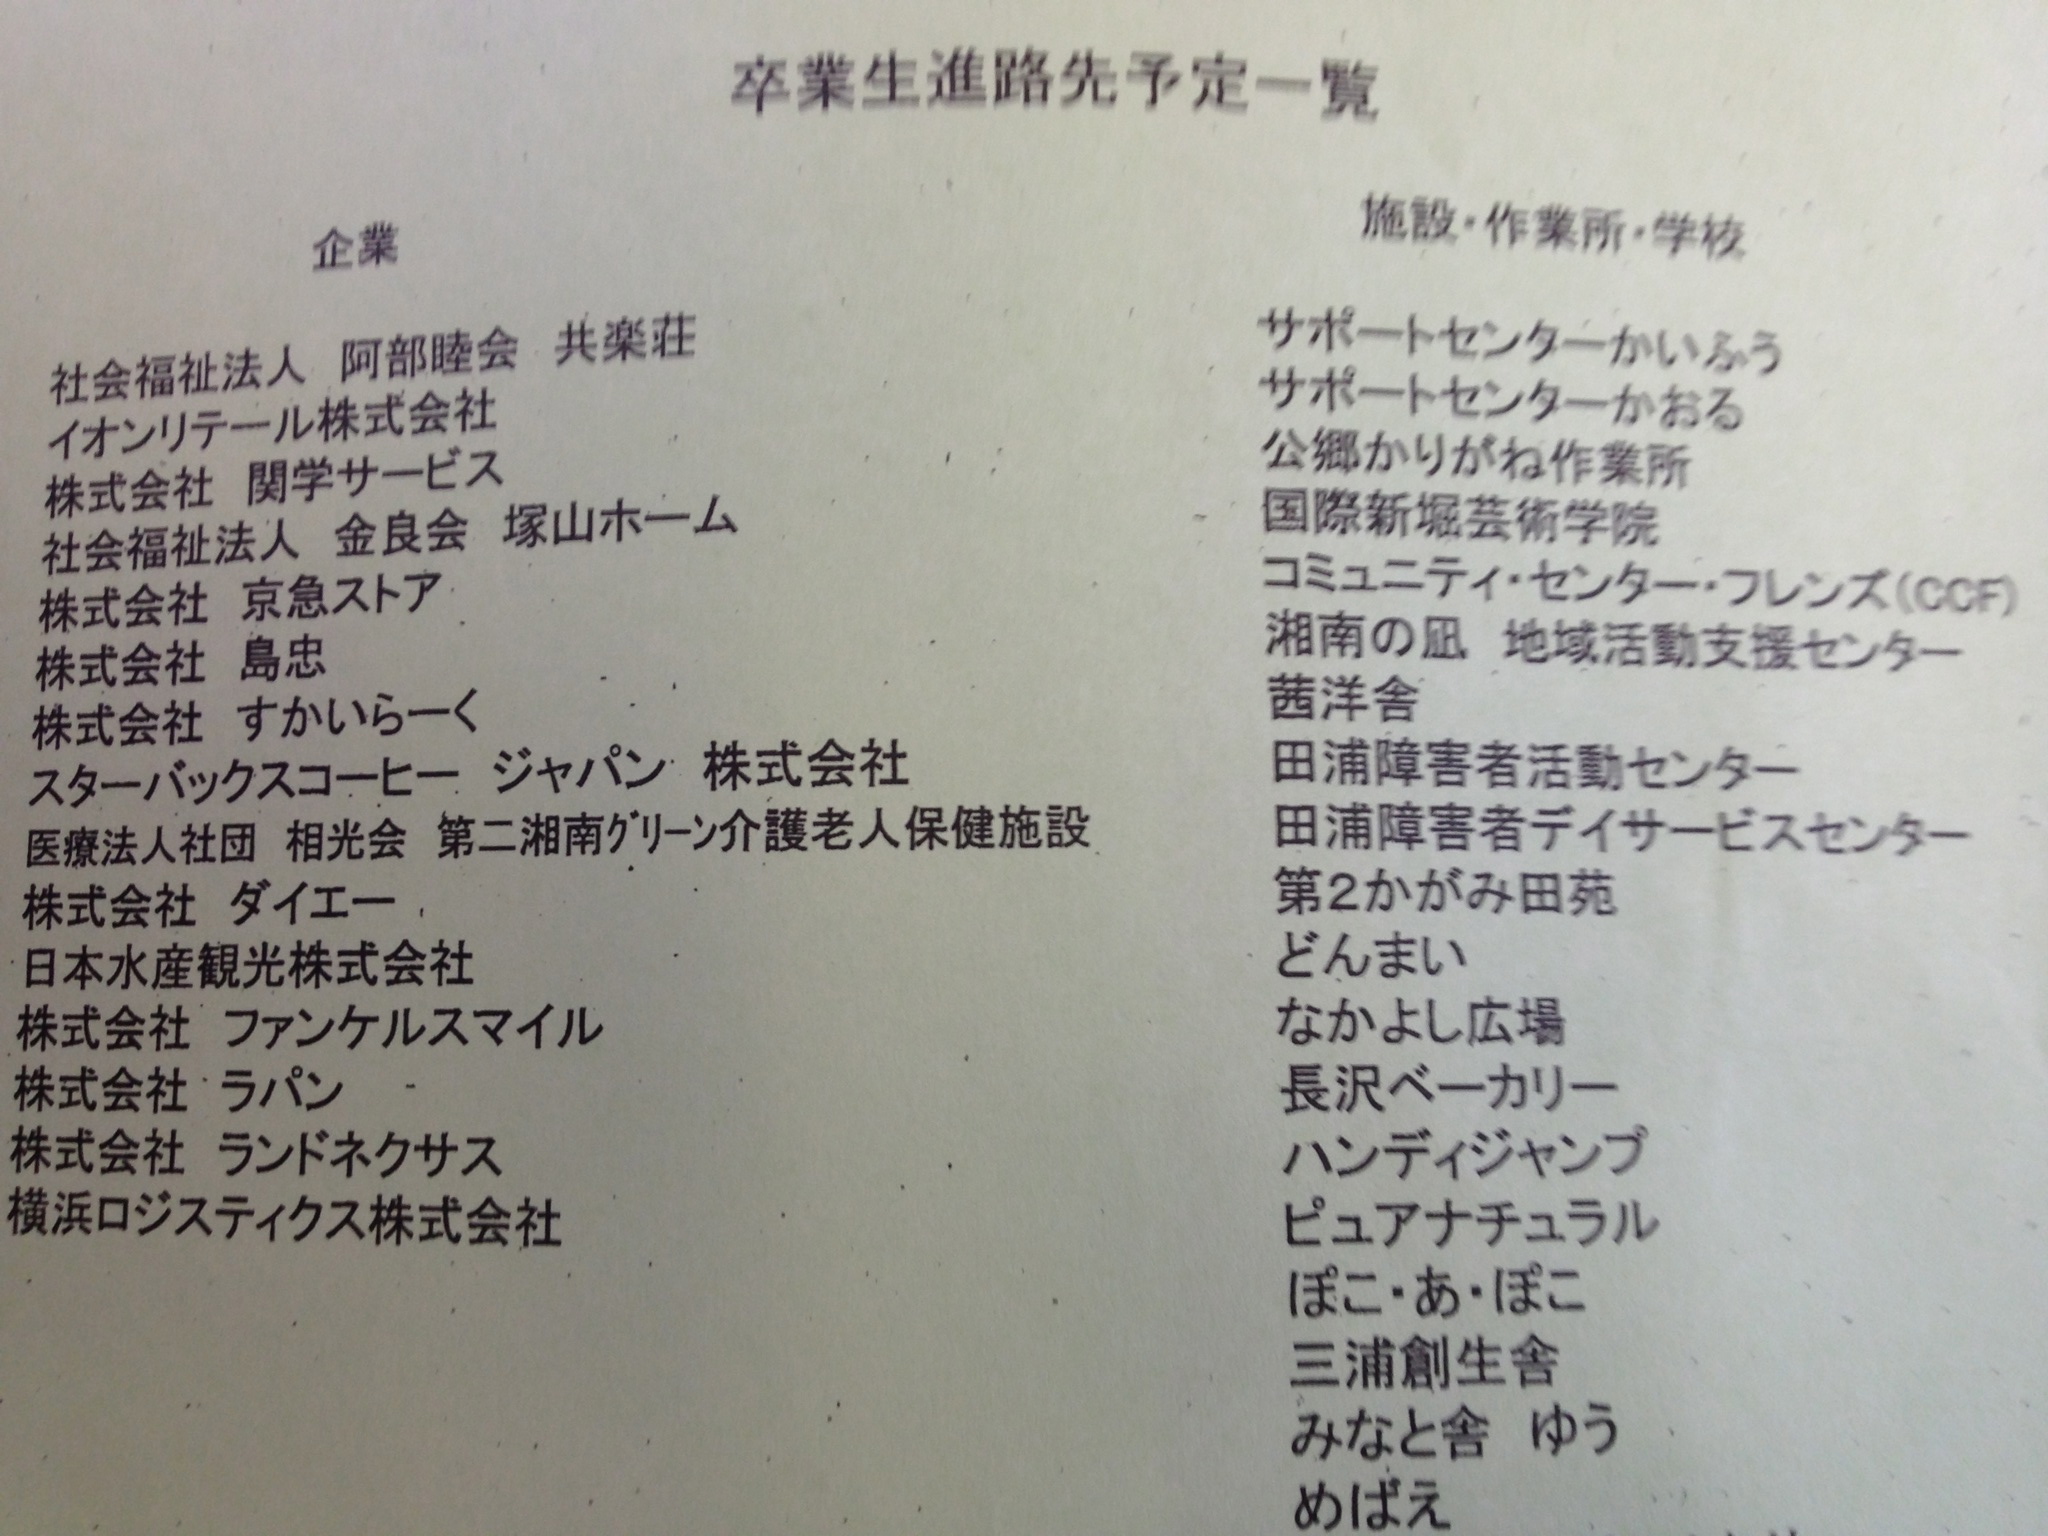 卒業生進路先予定一覧
企業
社会福祉法人 阿部睦会 共楽荘
イオンリテール株式会社
株式会社 関学サービス
社会福祉法人 金良会 塚山ホーム
株式会社 京急ストア
株式会社 島忠
株式会社 すかいらーく
スターバックスコーヒー ジャパン 株式会社
医療法人社団 相光会 第二湘南グリーン介護老人保健施設
株式会社 ダイエー
日本水産観光株式会社
株式会社 ファンケルスマイル
株式会社 ラパン
株式会社 ランドネクサス
横浜ロジスティクス株式会社
施設・作業所・学校
サポートセンターかいふう
サポートセンターかおる
公郷かりがね作業所
国際新堀芸術学院
コミュニティ・センター・フレンズ(CCF)
湘南の凪 地域活動支援センター
茜洋舎
田浦障害者活動センター
田浦障害者デイサービスセンター
第2かがみ田苑
どんまい
なかよし広場
長沢ベーカリー
ハンディジャンプ
ピュアナチュラル
ぽこ・あ・ぽこ
三浦創生舎
みなと舎 ゆう
めばえ